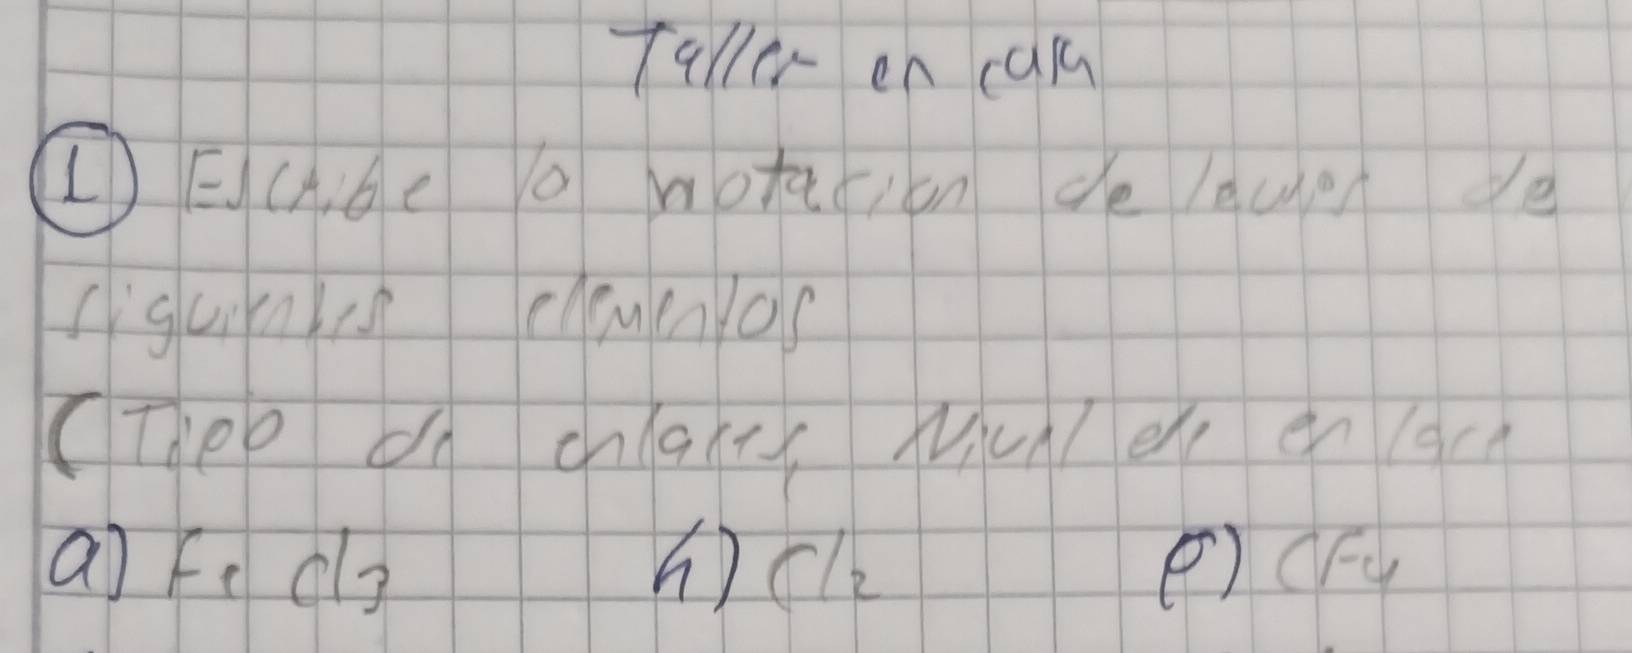 Taller en casa
① Escribe la notacion de lewis de
siguientes elementos
(Tipo de enlaces, Nivel de enlace
a) FeCl3 h) Cl2 p) CF4